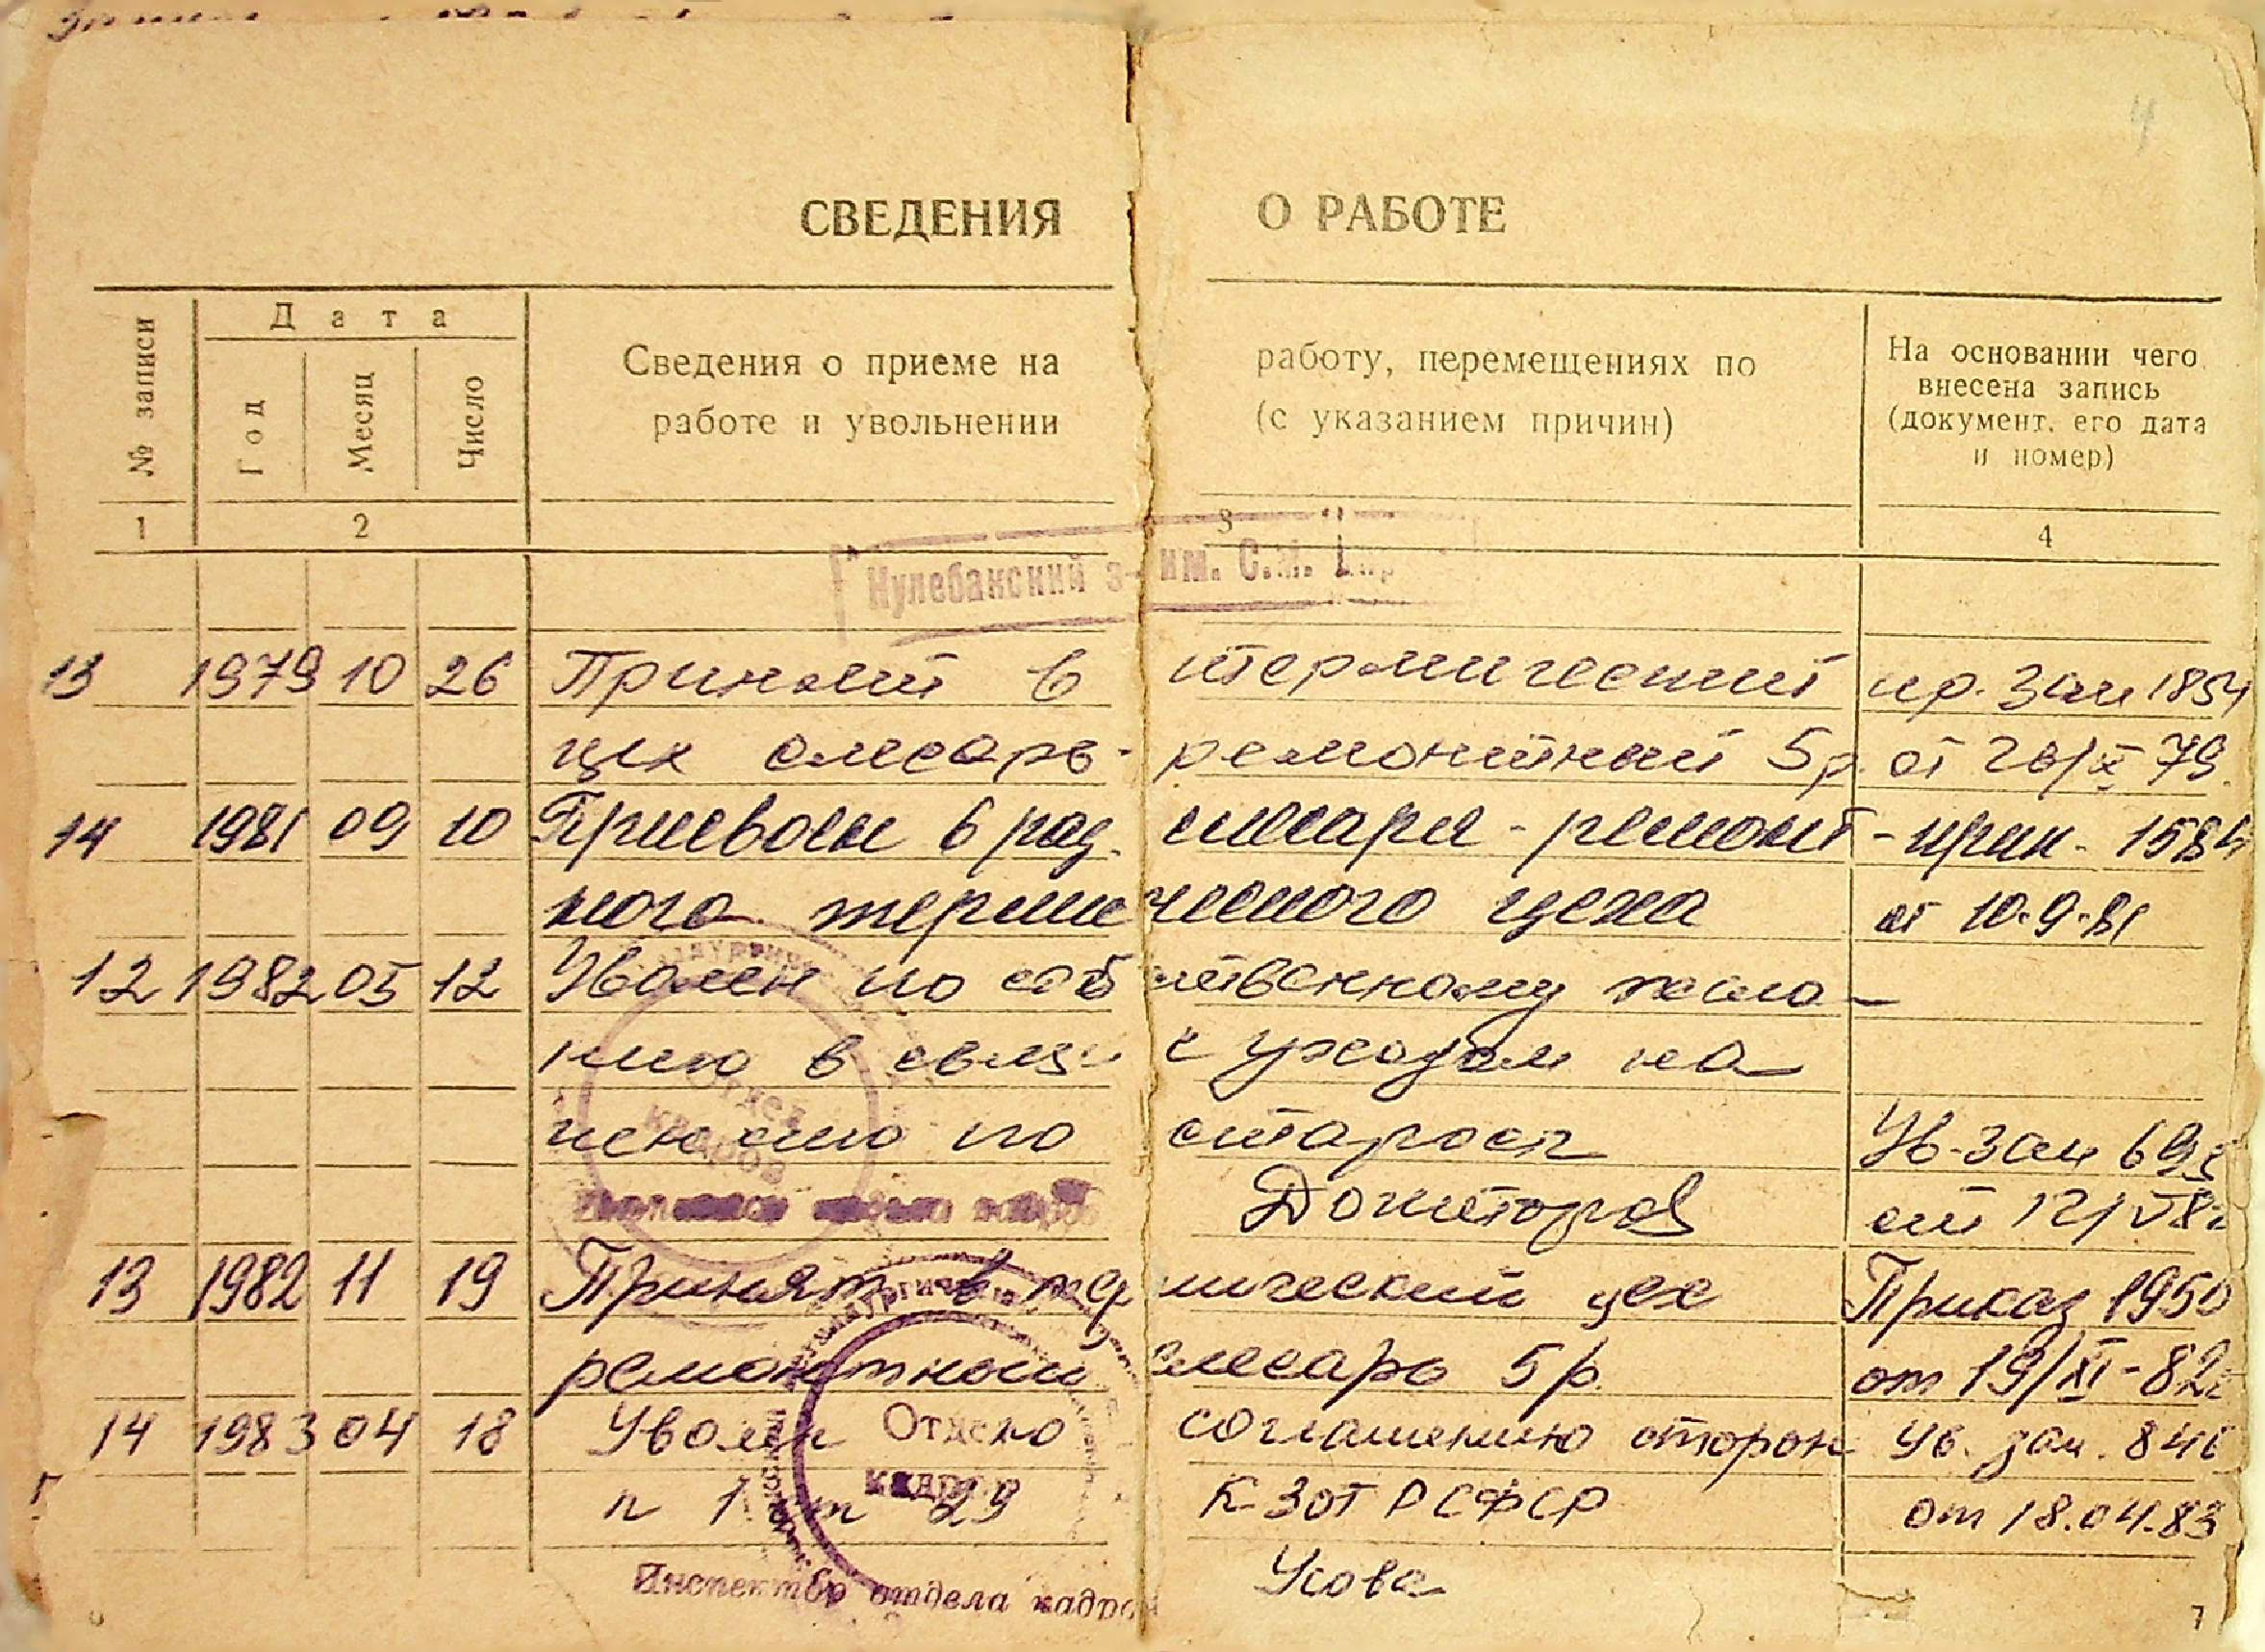 СВЕДЕНИЯ О РАБОТЕ
№ записи
Дата
Год
Месяц
Число
Сведения о приеме на работу, перемещениях по
работе и увольнении (с указанием причин)
На основании чего
внесена запись
(документ, его дата
и номер)
1 2 3 4
Кулебакский з- им. С.М.
13 1979 10 26 Принят в термический пр. зам 1854
цех слесарь- ремонтный 5р. от 26/X 79.
14 1981 09 10 Присвоен 6 раз. слесаря - ремонт- прик. 1584
ного термического цеха от 10.9.81
12 1982 05 12 Уволен по собственному жела-
нию в связи с уходом на
пенсию по старост Ув. зам 695
от 12/V 82
13 1982 11 19 Принят в тер мический цех Приказ 1950
ремонтным слесарь 5р. от 19/XI-82г
14 1983 04 18 Уволен по соглашению сторон Ув. зам. 846
п 1 ст 29 КЗОТ РСФСР от 18.04.83
Инспектор отдела кадров Усова
Отдел
кадров
Отдел
кадров
7